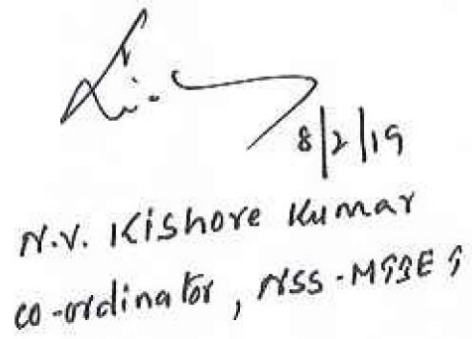 8/2/19
N.V. Kishore Kumar
co-ordinator, NSS-